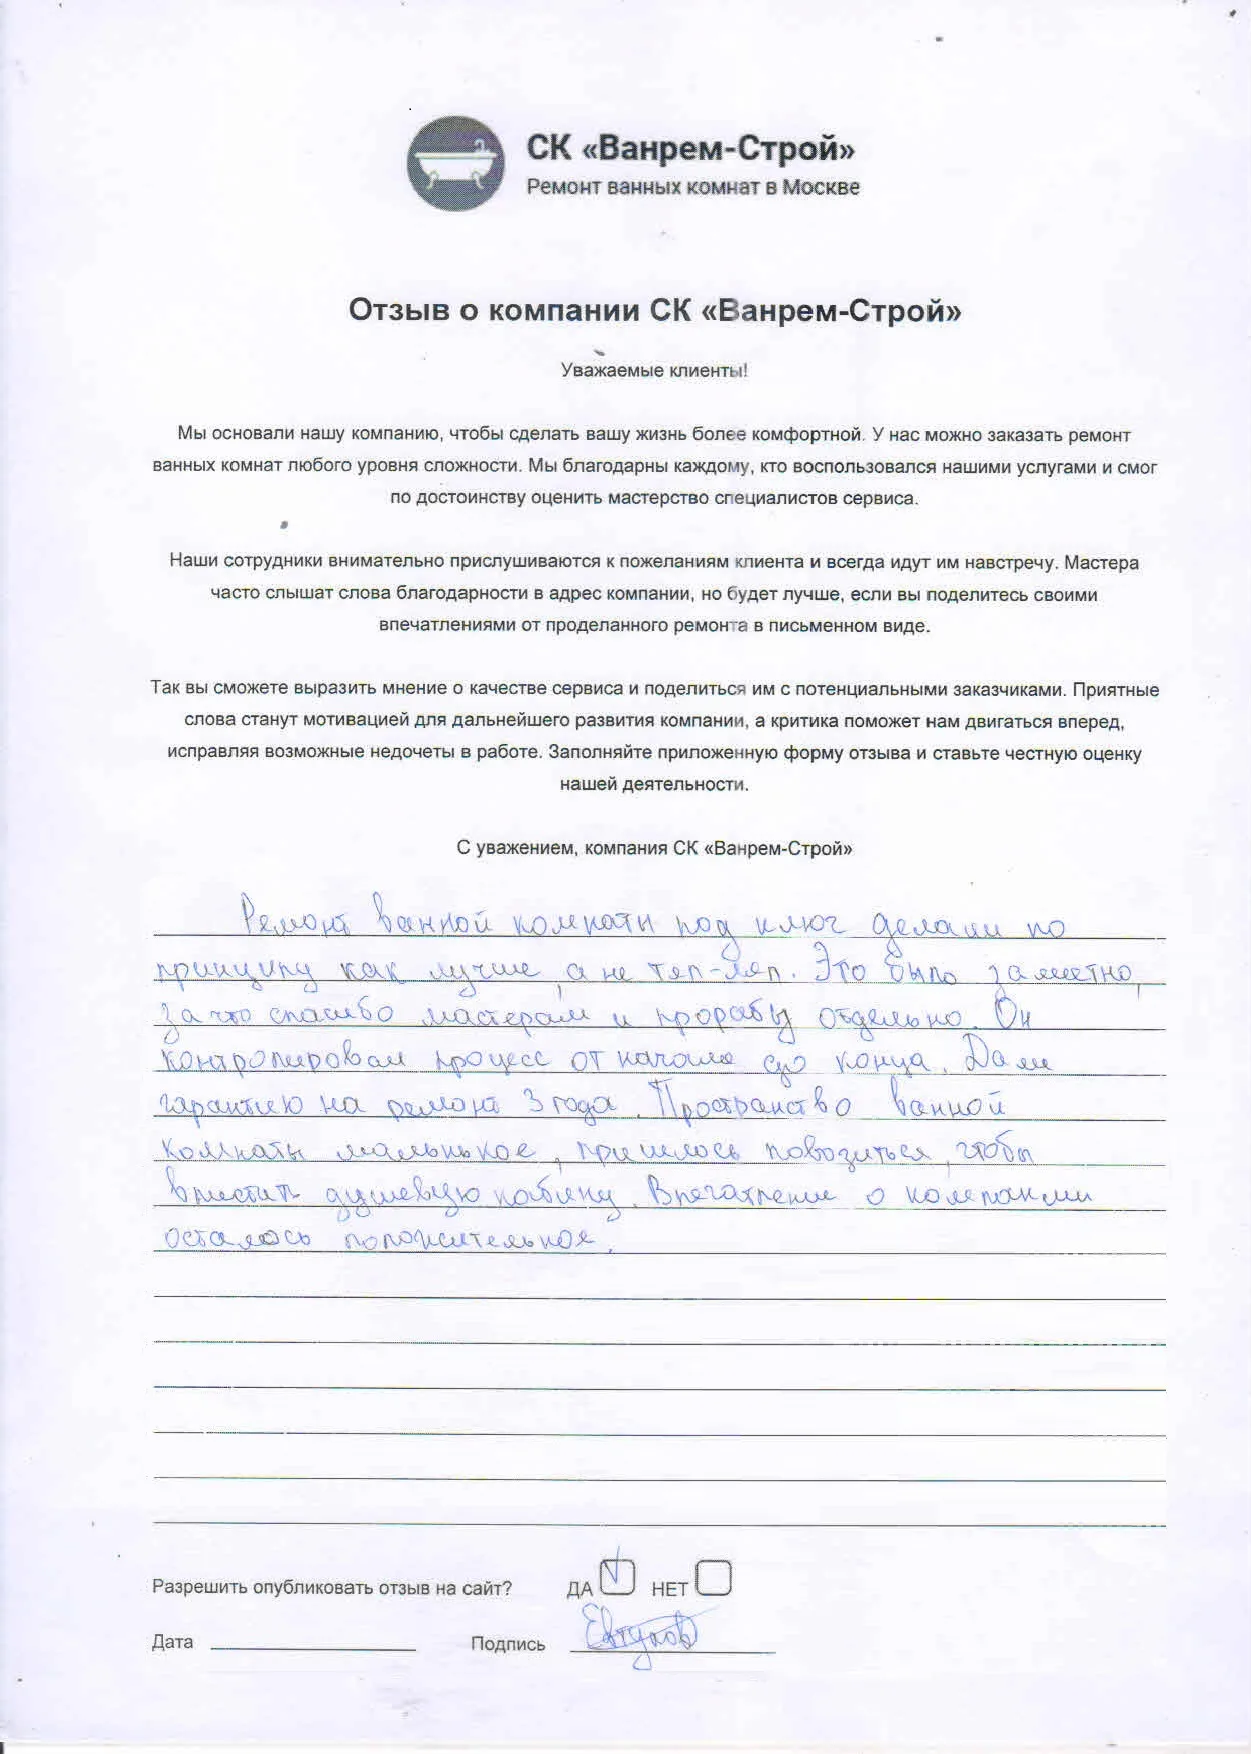 СК «Ванрем-Строй»
Ремонт ванных комнат в Москве
Отзыв о компании СК «Ванрем-Строй»
Уважаемые клиенты!
Мы основали нашу компанию, чтобы сделать вашу жизнь более комфортной. У нас можно заказать ремонт
ванных комнат любого уровня сложности. Мы благодарны каждому, кто воспользовался нашими услугами и смог
по достоинству оценить мастерство специалистов сервиса.
Наши сотрудники внимательно прислушиваются к пожеланиям клиента и всегда идут им навстречу. Мастера
часто слышат слова благодарности в адрес компании, но будет лучше, если вы поделитесь своими
впечатлениями от проделанного ремонта в письменном виде.
Так вы сможете выразить мнение о качестве сервиса и поделиться им с потенциальными заказчиками. Приятные
слова станут мотивацией для дальнейшего развития компании, а критика поможет нам двигаться вперед,
исправляя возможные недочеты в работе. Заполняйте приложенную форму отзыва и ставьте честную оценку
нашей деятельности.
С уважением, компания СК «Ванрем-Строй»
Ремонт ванной комнаты под ключ делали по
принципу как лучше, а не тяп-ляп. Это было заметно,
за что спасибо мастерам и прорабу отдельно. Он
контролировал процесс от начала до конца. Дали
гарантию на ремонт 3 года. Пространство ванной
комнаты маленькое, пришлось повозиться, чтобы
вместить душевую кабину. Впечатление о компании
осталось положительное.
Разрешить опубликовать отзыв на сайт? ДА НЕТ
Дата Подпись Евтухов